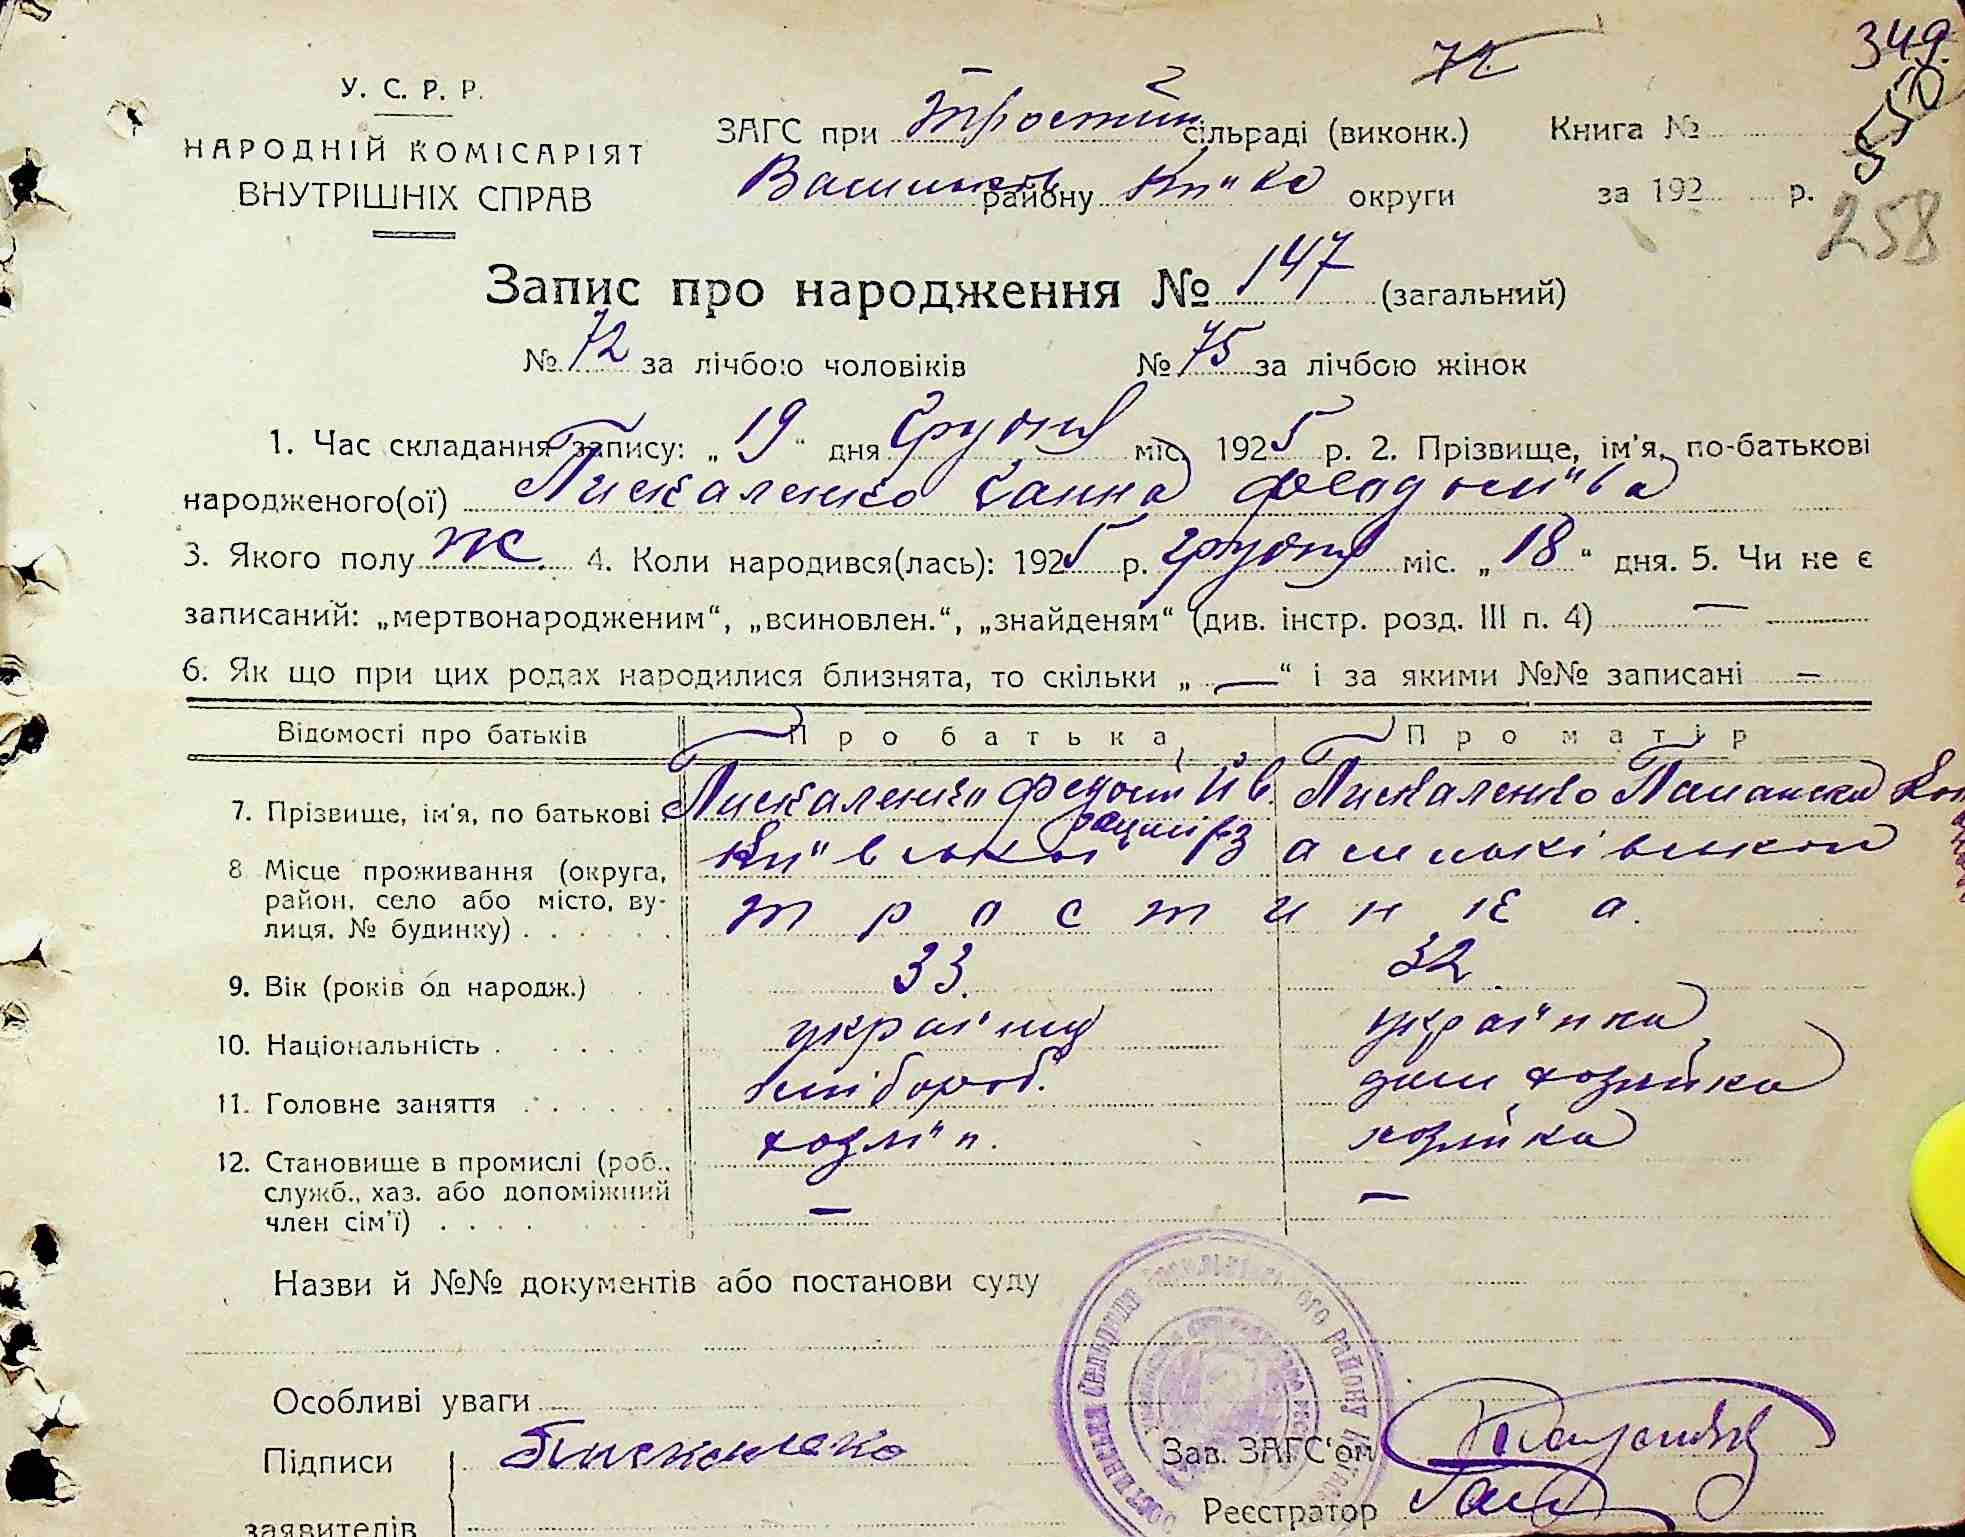 72
349.
550
258
У. С. Р. Р.
НАРОДНІЙ КОМІСАРІЯТ
ВНУТРІШНІХ СПРАВ
ЗАГС при Тростин сільраді (виконк.) Книга №
Васильків району Київсо округи за 192 р.
Запис про народження № 147 (загальний)
№ 72 за лічбою чоловіків № 75 за лічбою жінок
1. Час складання запису: „ 19 “ дня Грудня міс. 1925 р. 2. Прізвище, ім'я, по-батькові
народженого(ої) Пискаленко Ганна Федосіївна
3. Якого полу ж. 4. Коли народився(лась): 1925 р. грудня міс. „ 18 “ дня. 5. Чи не є
записаний: „мертвонародженим“, „всиновлен.“, „знайденям“ (див. інстр. розд. III п. 4) —
6. Як що при цих родах народилися близнята, то скільки „ — “ і за якими №№ записані —
Відомості про батьків Про батька Про матір
7. Прізвище, ім'я, по батькові Пискаленко Федосій Ів. Пискаленко Палажка
8 Місце проживання (округа, Київської Васильківської
район, село або місто, ву-
лиця, № будинку) Тростинка.
9. Вік (років од народж.) 33. 32.
10. Національність українц українка
11. Головне заняття хлібороб. дом хозяйка
12. Становище в промислі (роб., хозяїн. хозяйка
служб., хаз. або допоміжний
член сім'ї) — —
Назви й №№ документів або постанови суду
Особливі уваги
Підписи Пискаленко Зав. ЗАГС'ом
заявителів Реєстратор